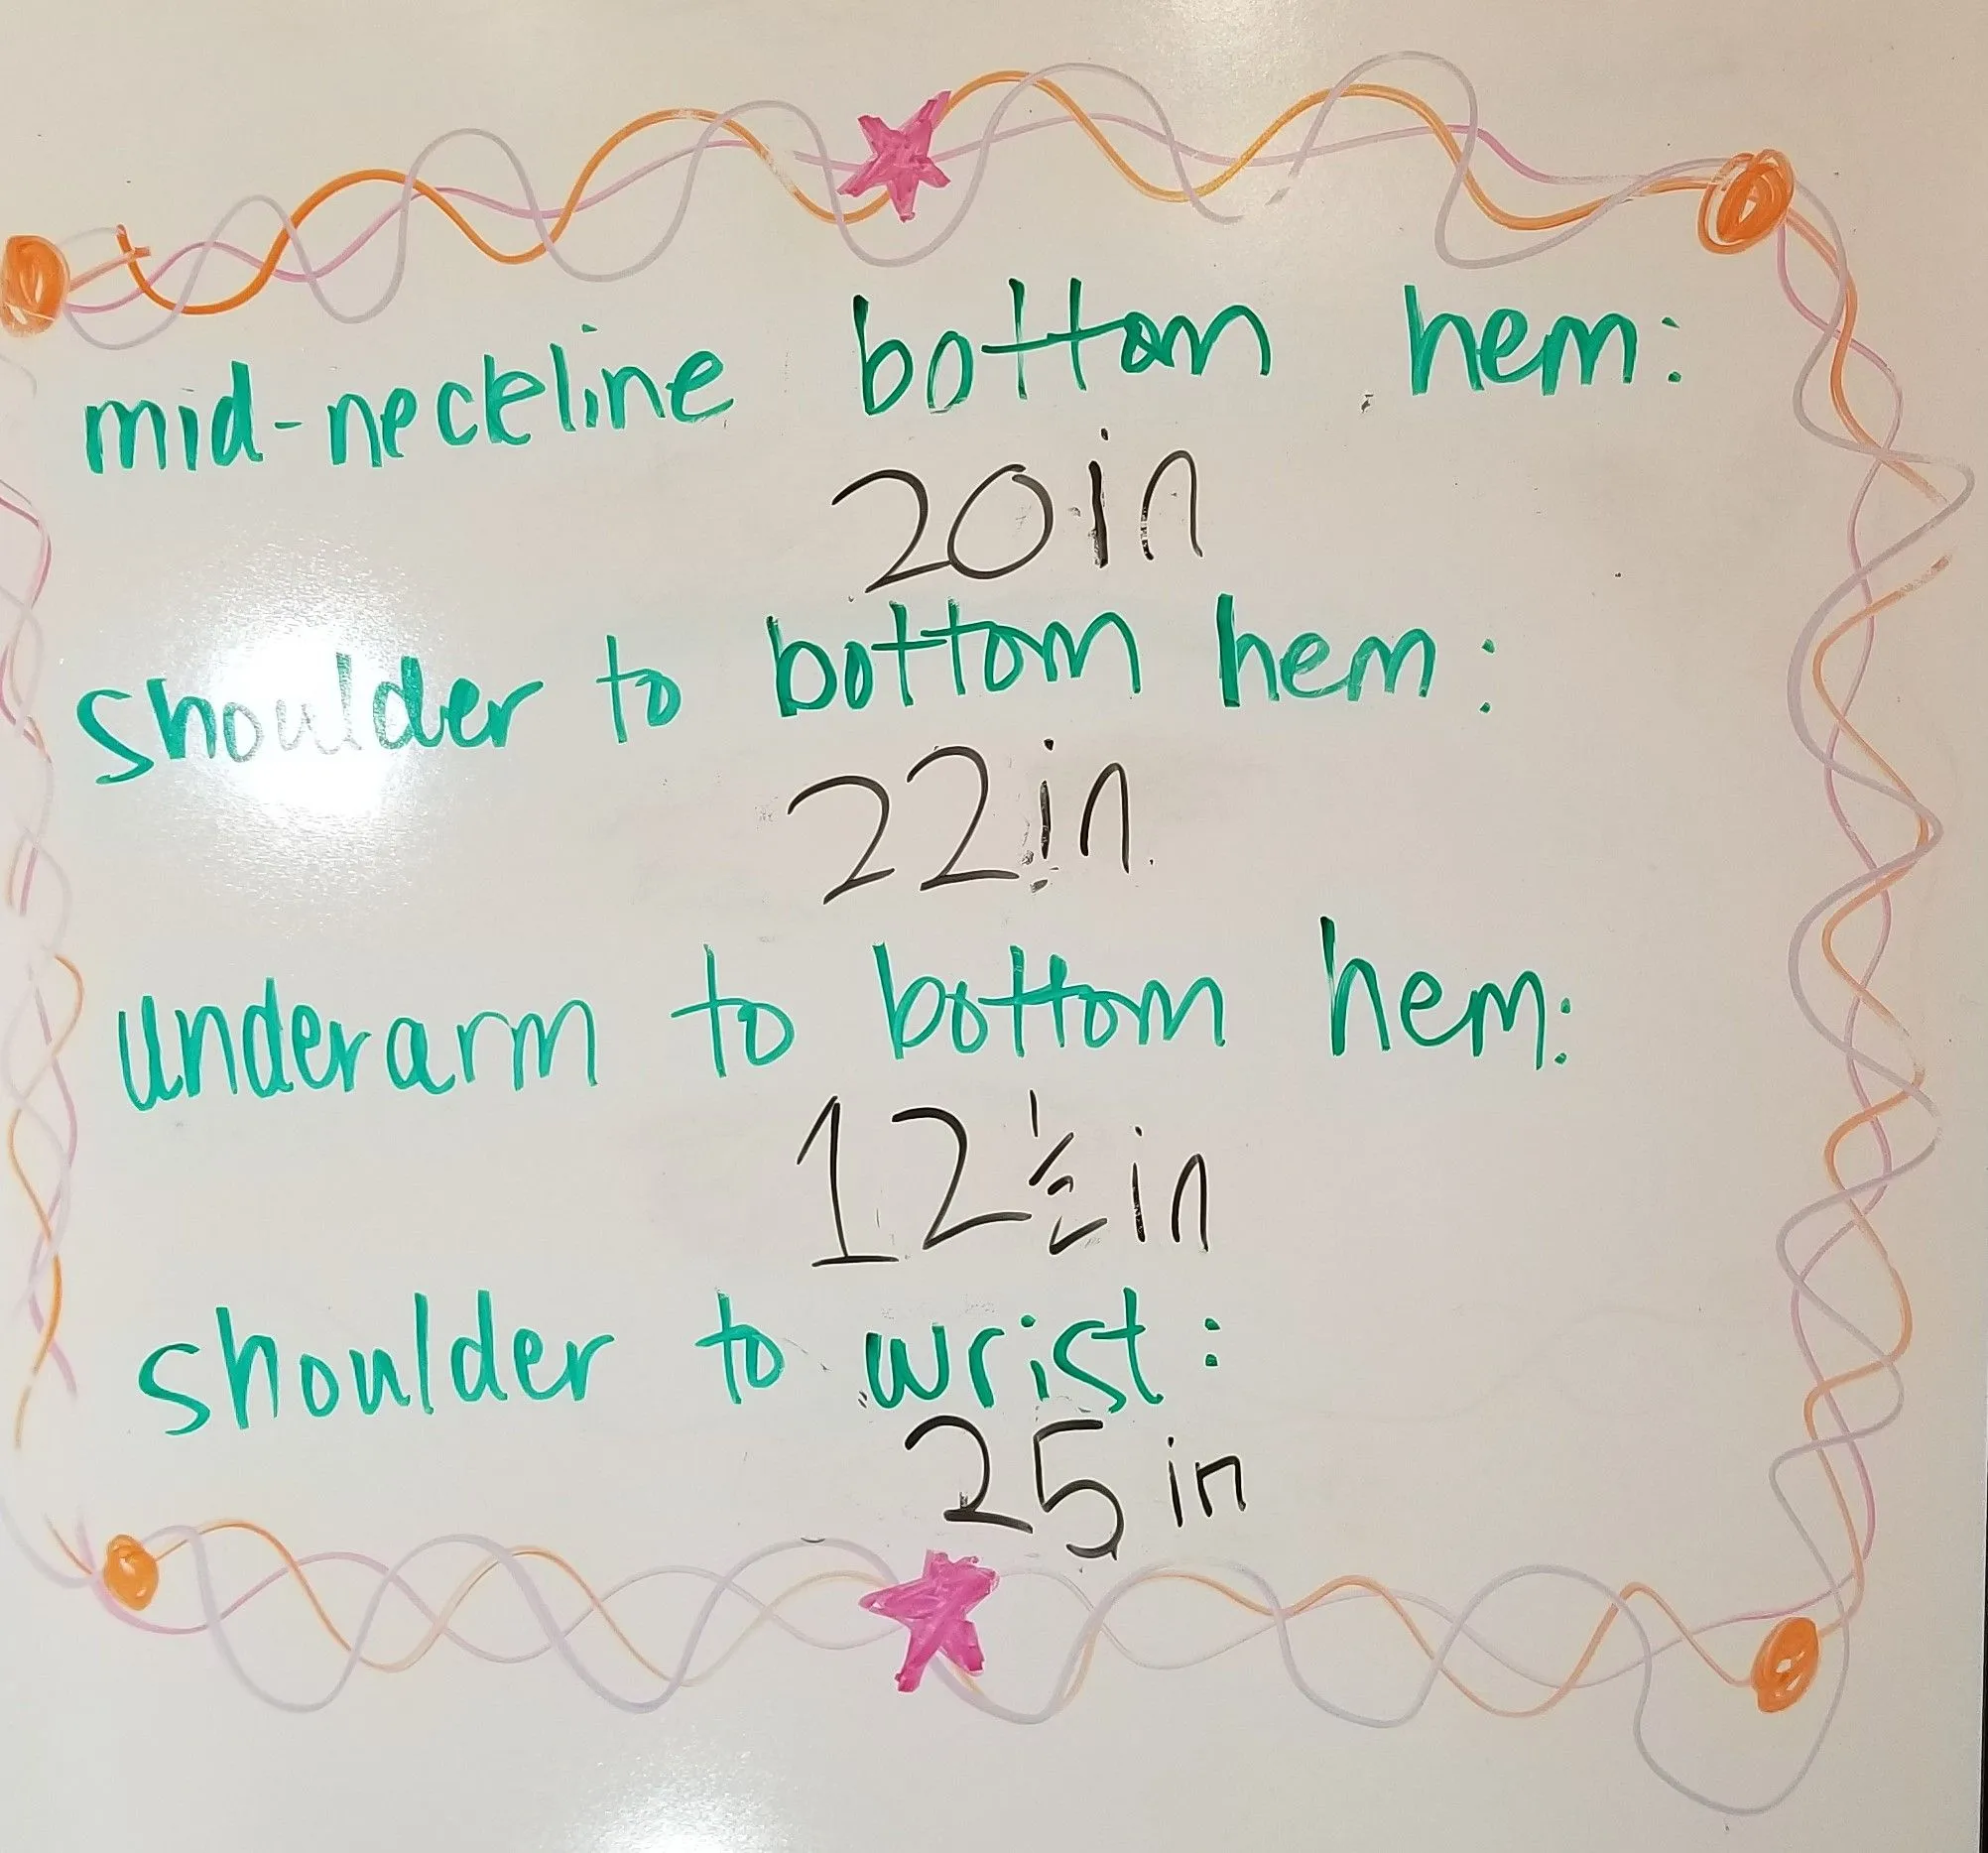 mid-neckline bottom hem:
20in
shoulder to bottom hem:
22in
underarm to bottom hem:
12 ½ in
shoulder to wrist:
25 in